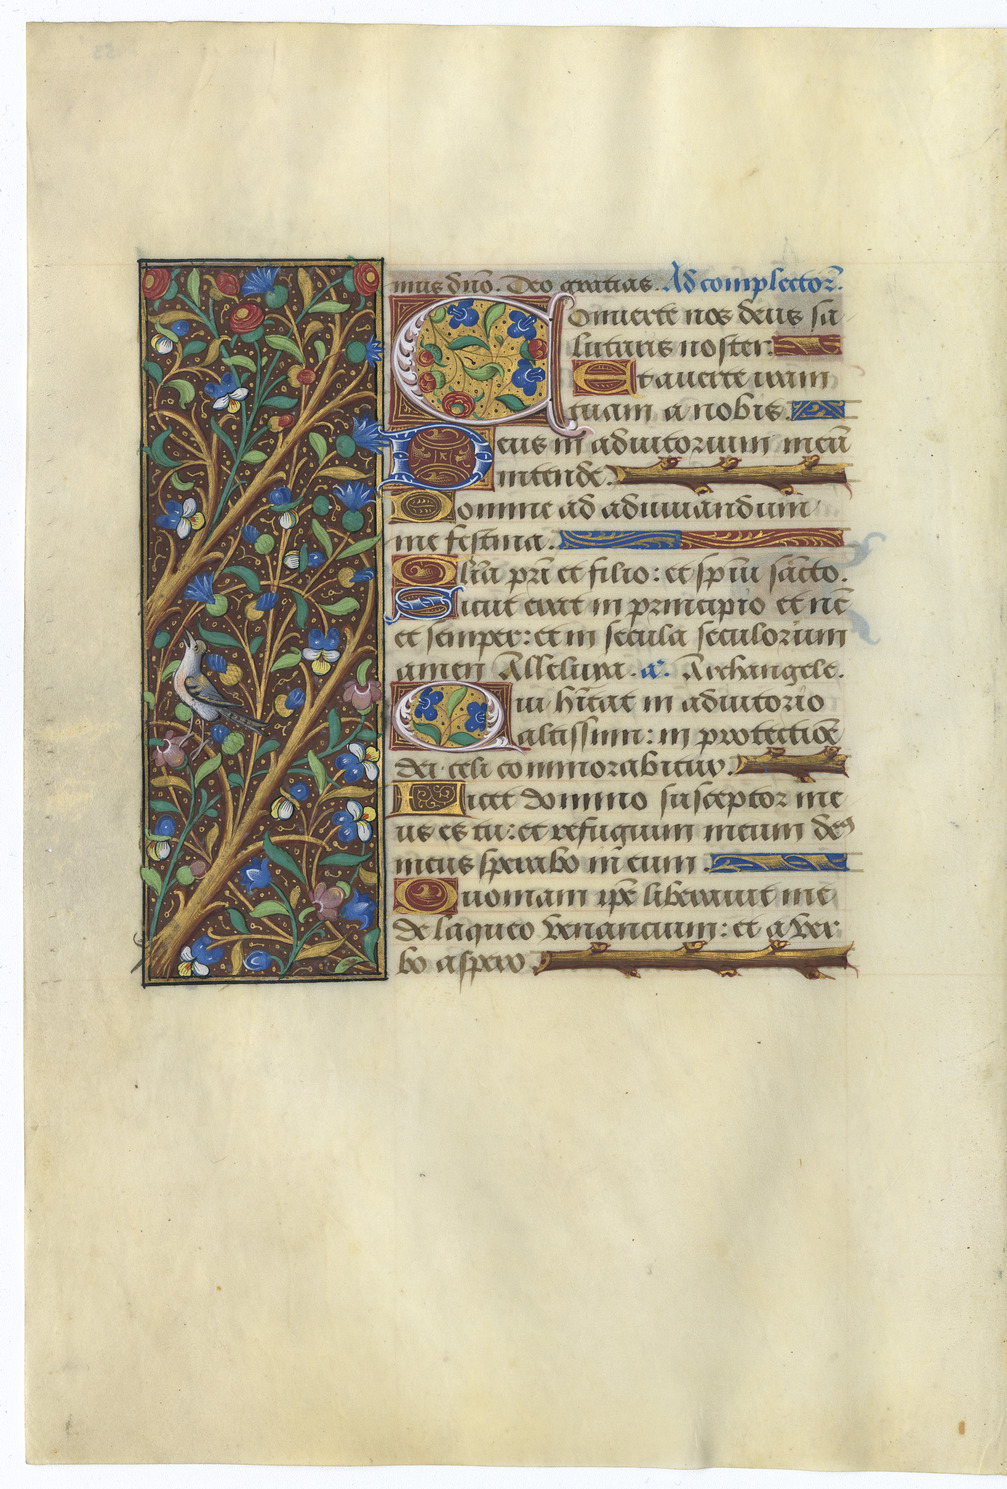 mus dño. Deo gratias. Ad complectoꝝ.
Conuerte nos deus sa
lutaris noster.
Et auerte iram
tuam a nobis.
Deus in adiutorium meũ
intende.
Domine ad adiuuandum
me festina.
Glia pri et filio: et spiui scto.
Sicut erat in principio et nc̃
et semper: et in secula seculorum
amen Alleluya. a. Archangele.
Qui hĩtat in adiutorio
altissimi: in protectiõe
dei celi commorabitur.
Dicet domino susceptor me
us es tu: et refugium meum deꝰ
meus sperabo in eum.
Quoniam ip̃e liberauit me
de laqueo venancium: et a ver
bo aspero.